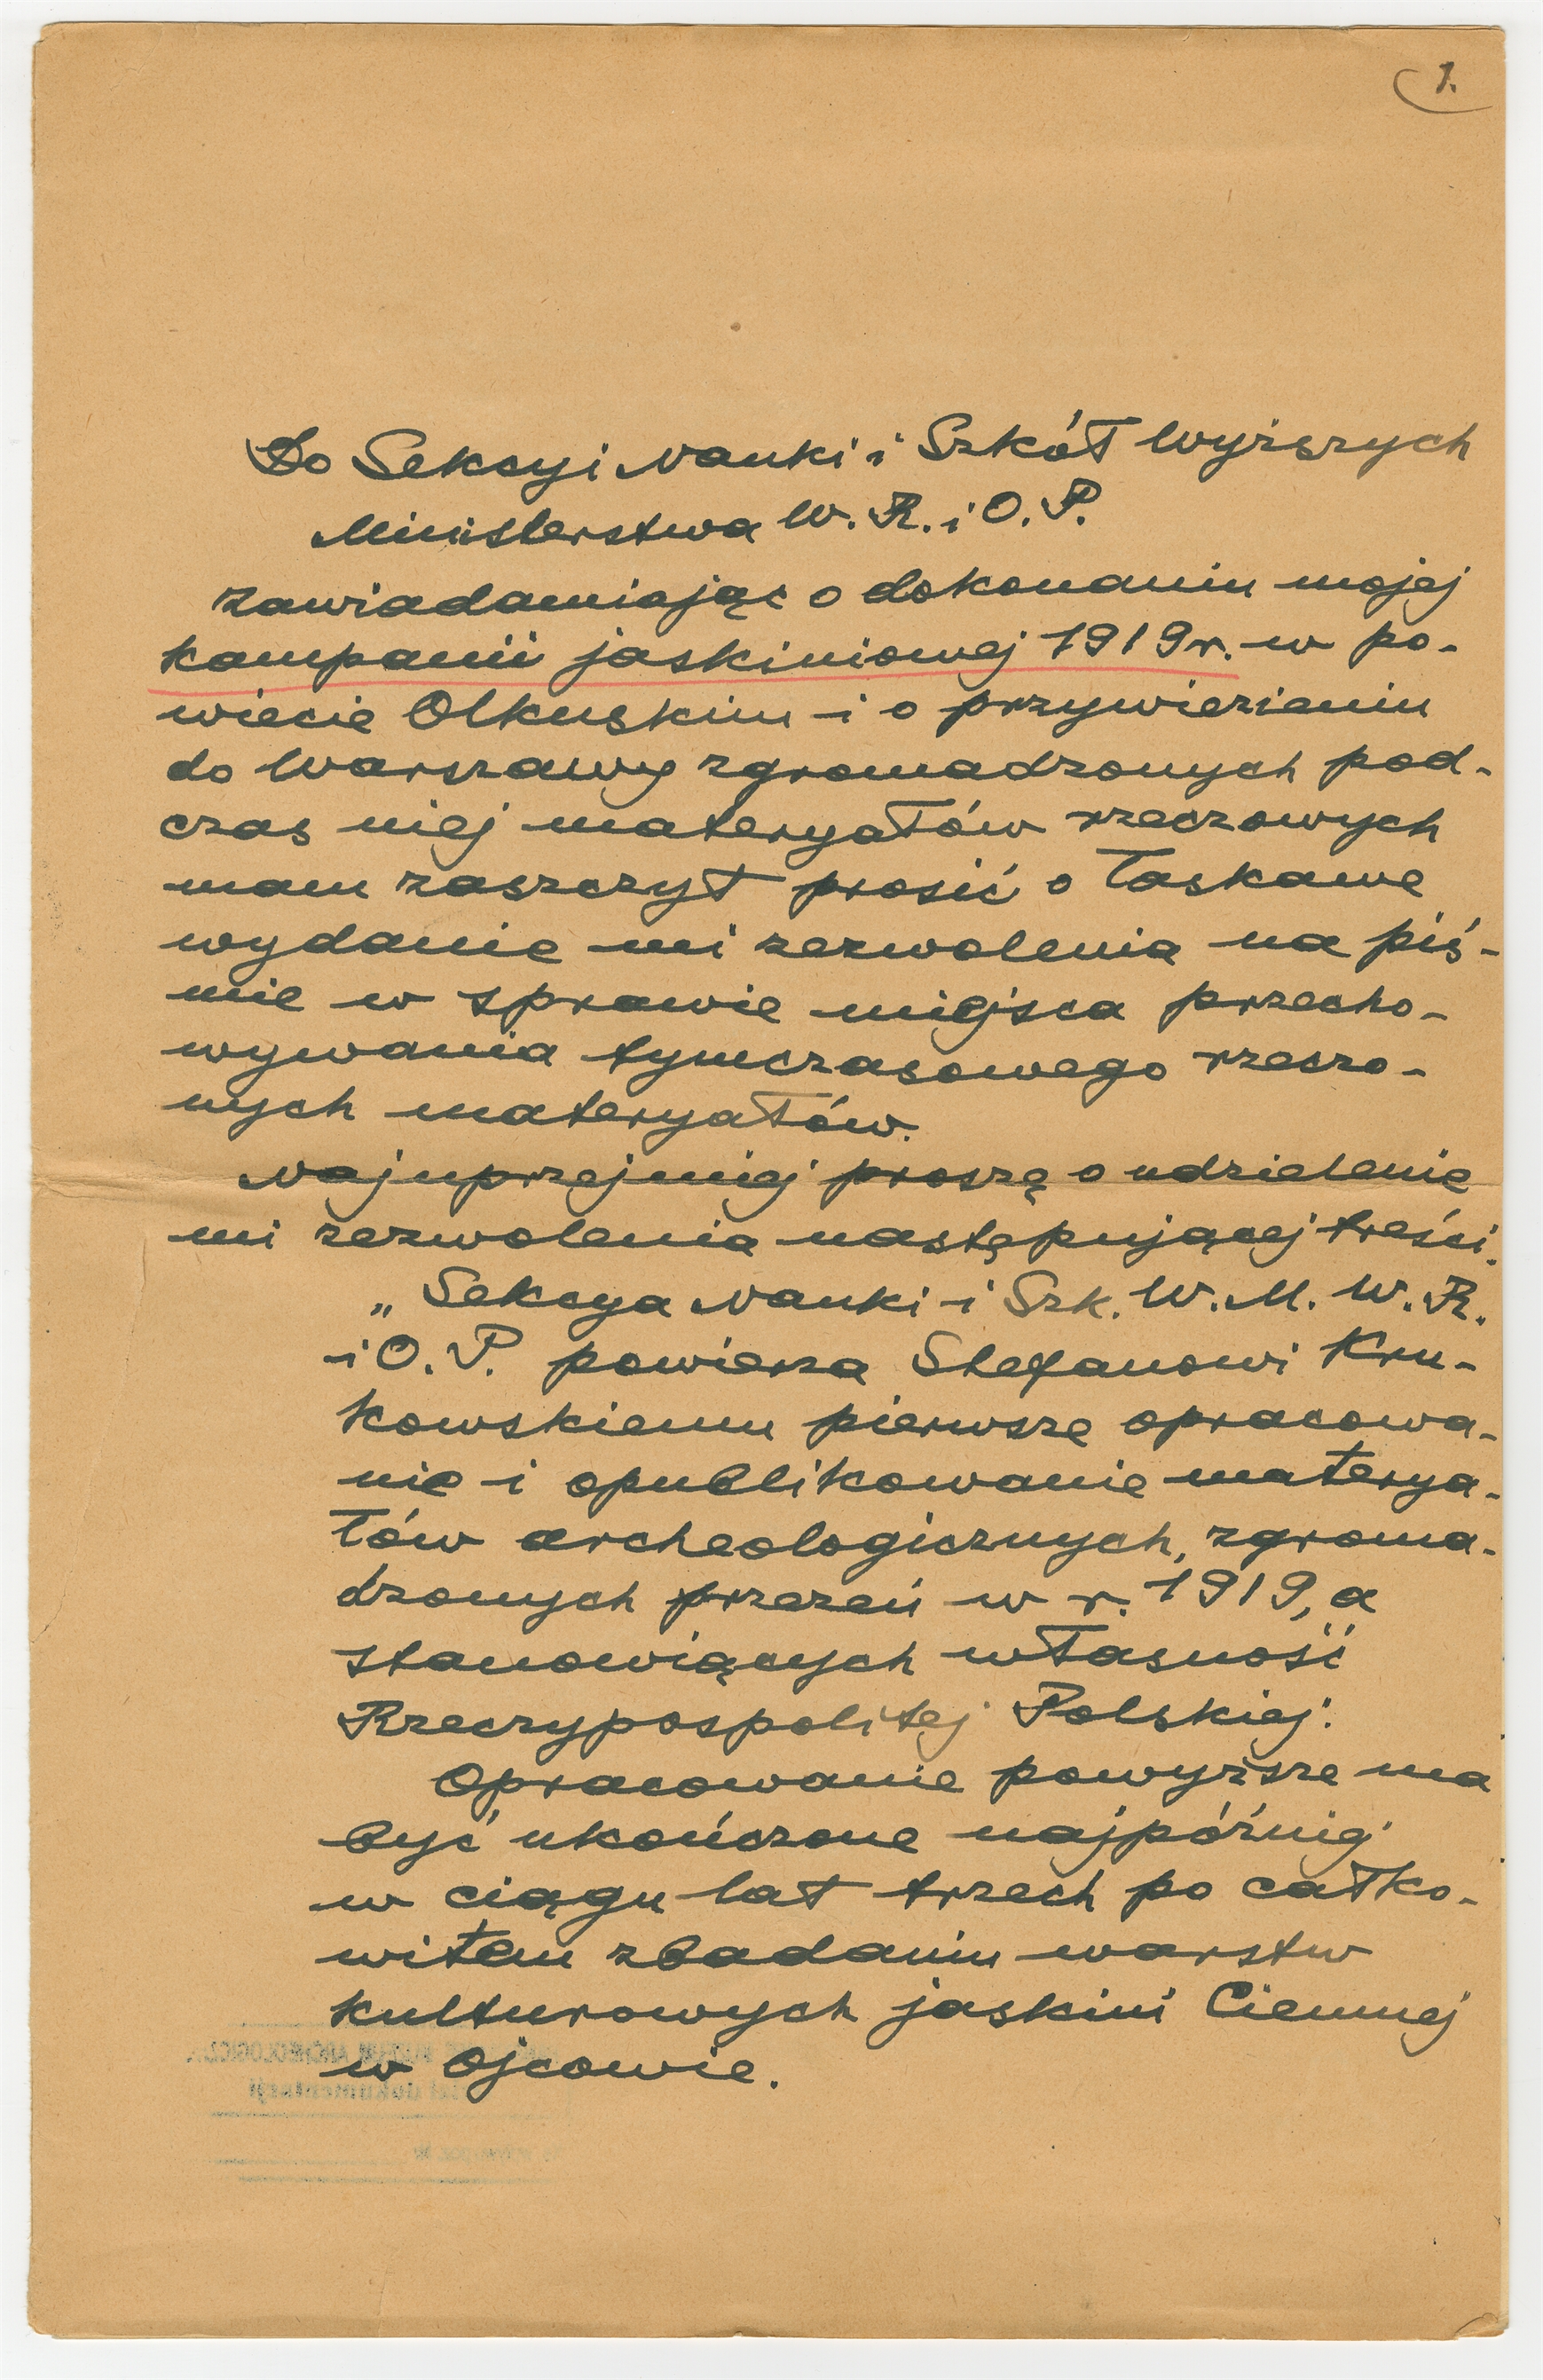 1.
Do Sekcyi Nauki i Szkół Wyższych
Ministerstwa W. R. i O. P.
Zawiadamiając o dokonaniu mojej
kampanii jaskiniowej 1919 r. w po-
wiecie Olkuskim i o przywiezieniu
do Warszawy zgromadzonych pod-
czas niej materyałów rzeczowych
mam zaszczyt prosić o łaskawe
wydanie mi zezwolenia na piś-
mie w sprawie miejsca przecho-
wywania tymczasowego rzeczo-
nych materyałów.
Najuprzejmiej proszę o udzielenie
mi zezwolenia następującej treści.
„Sekcya Nauki i Szk. W. M. W. R.
i O. P. powierza Stefanowi Kru-
kowskiemu pierwsze opracowa-
nie i opublikowanie materya-
łów archeologicznych, zgroma-
dzonych przezeń w r. 1919, a
stanowiących własność
Rzeczypospolitej Polskiej.
Opracowanie powyższe ma
być ukończone najpóźniej
w ciągu lat trzech po całko-
witem zbadaniu warstw
kulturowych jaskini Ciemnej
w Ojcowie.